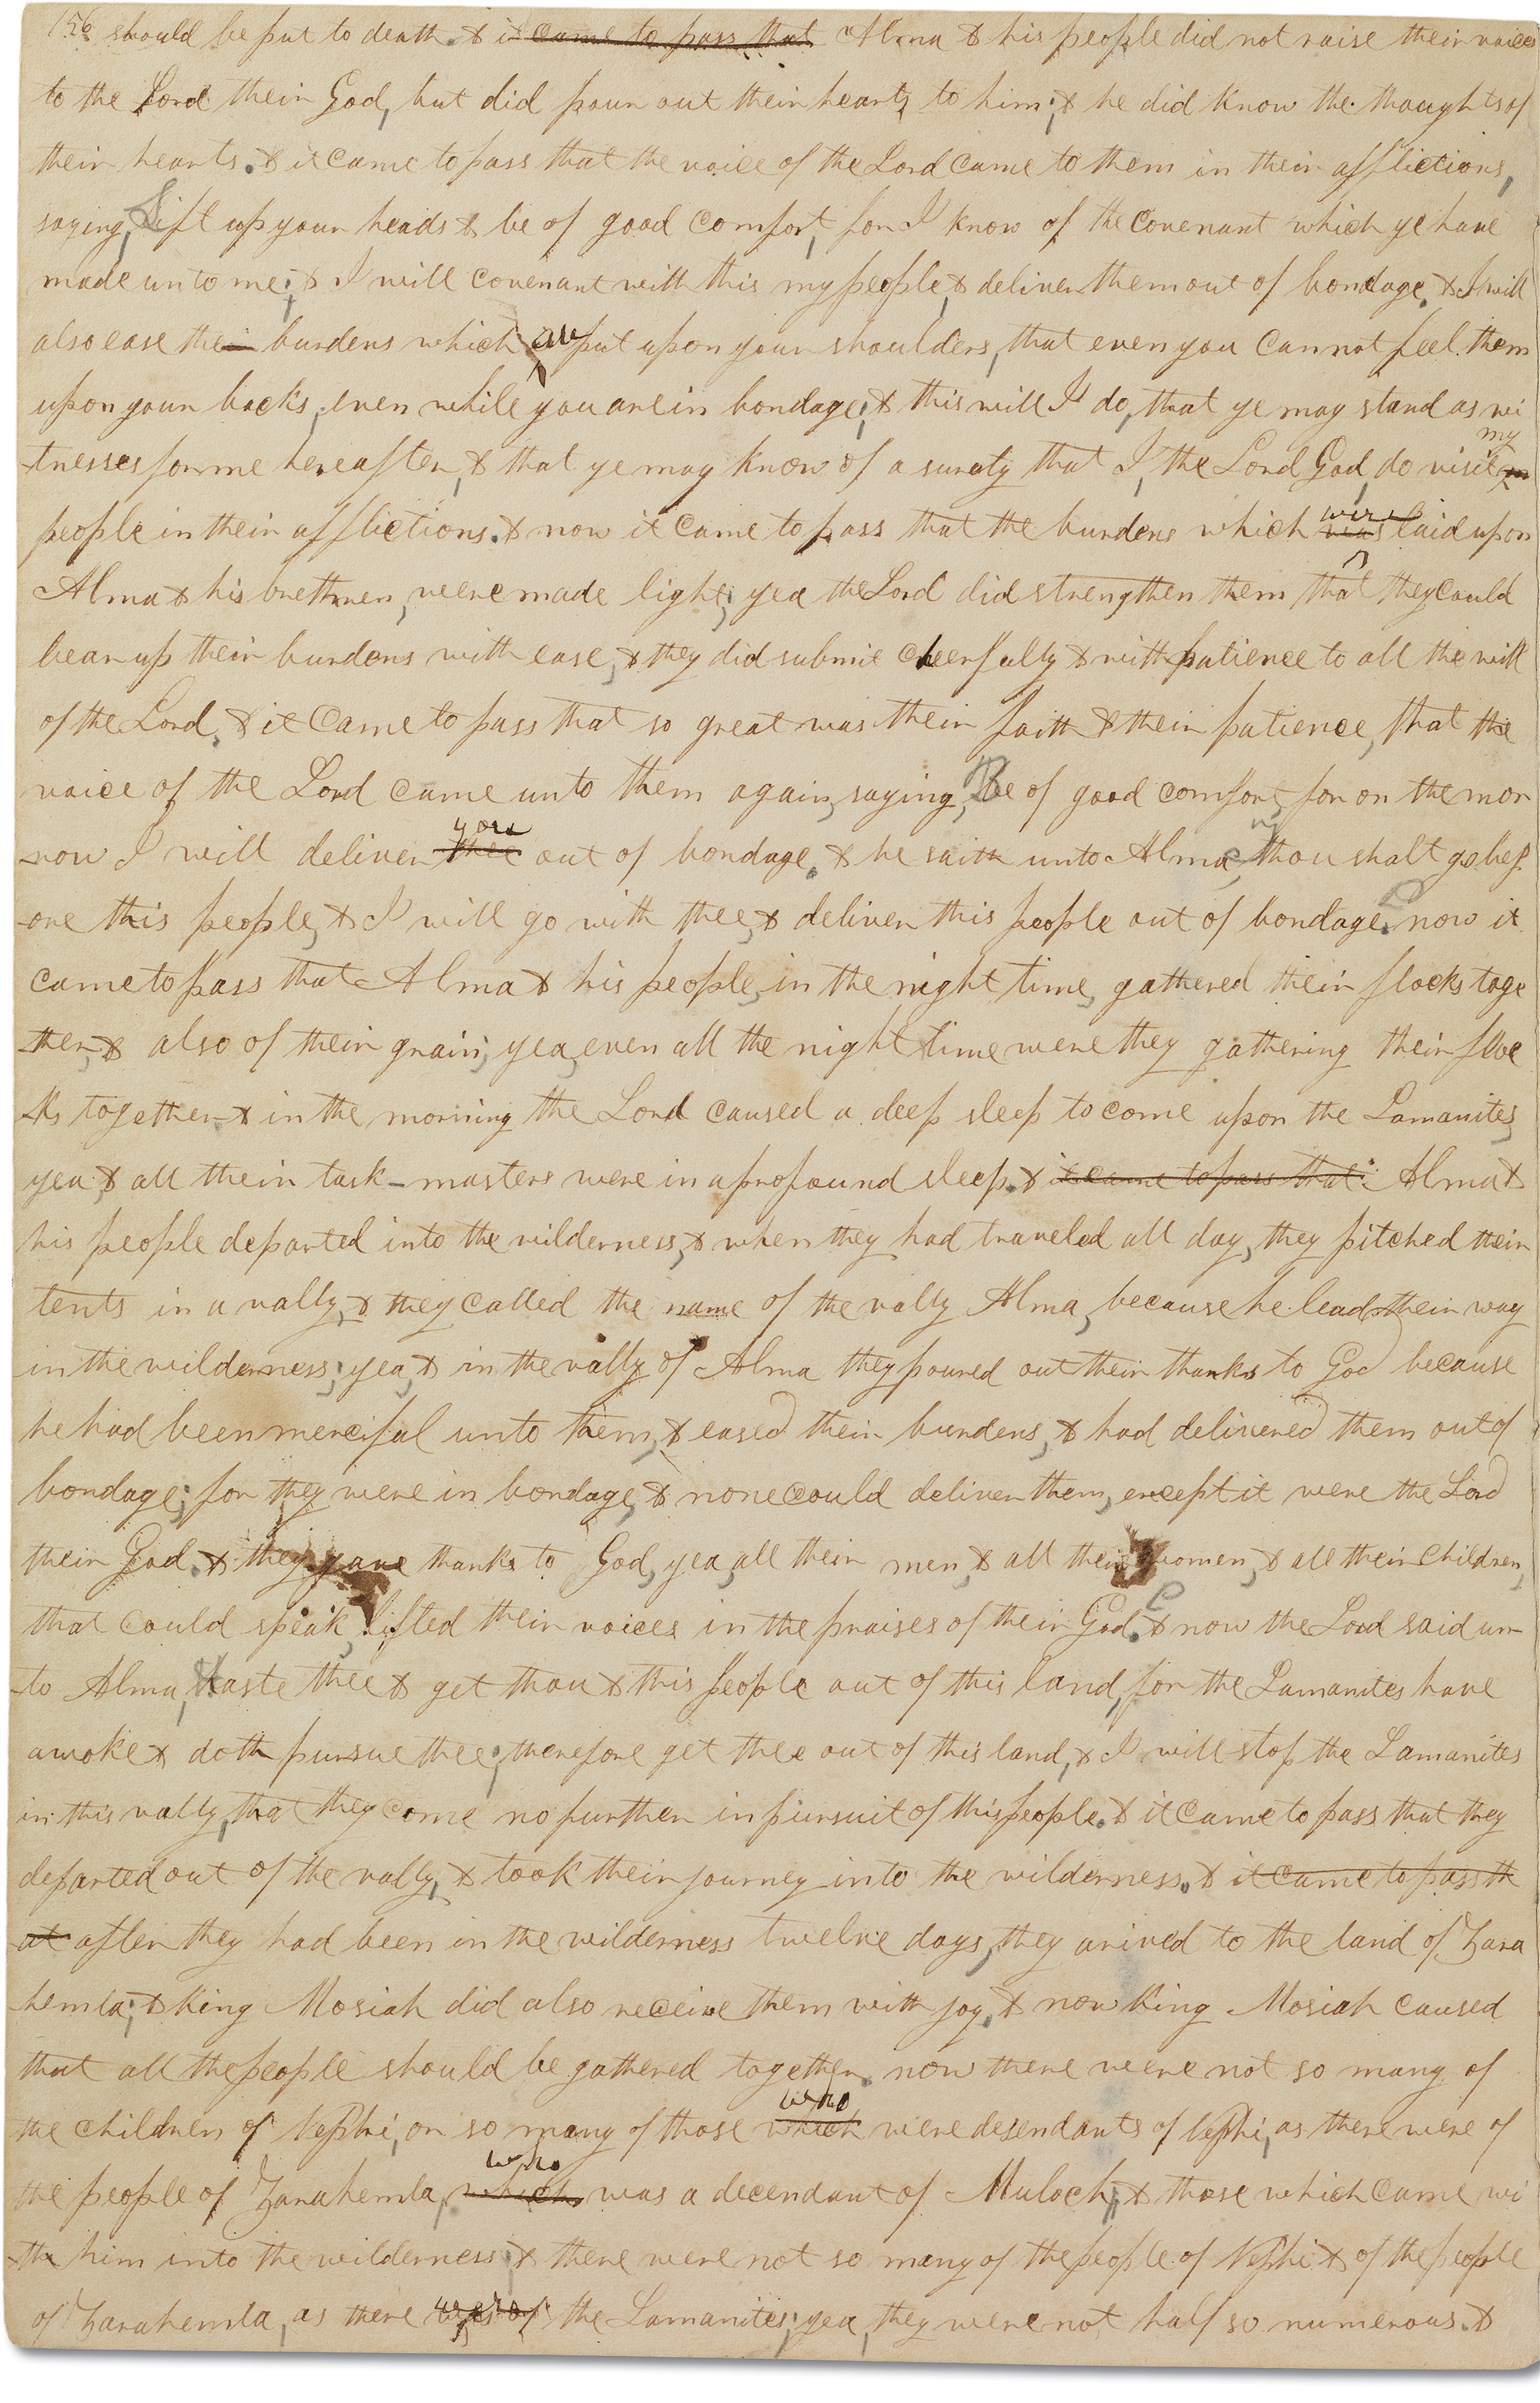 156 should be put to death. & it came to pass that Alma & his people did not raise their voices
to the Lord their God, but did pour out their hearts to him; & he did know the thoughts of
their hearts. & it came to pass that the voice of the Lord came to them in their afflictions,
saying, Lift up your heads & be of good comfort, for I know of the covenant which ye have
made unto me; & I will covenant with this my people, & deliver them out of bondage. & I will
also ease the burdens which are put upon your shoulders, that even you cannot feel them
upon your backs, even while you are in bondage; & this will I do, that ye may stand as wi
my
-tnesses for me hereafter, & that ye may know of a surety that I, the Lord God, do visit
were
people in their afflictions. & now it came to pass that the burdens which was laid upon
Alma & his brethren, were made light; yea the Lord did strengthen them that they could
bear up their burdens with ease, & they did submit cheerfully & with patience to all the will
of the Lord. & it came to pass that so great was their faith & their patience, that the
voice of the Lord came unto them again, saying, Be of good comfort, for on the mor
you
-row I will deliver thee out of bondage. & he saith unto Alma, thou shalt go bef
-ore this people, & I will go with thee, & deliver this people out of bondage. now it
came to pass that Alma & his people, in the night time, gathered their flocks toge
-ther, & also of their grain; yea, even all the night time were they gathering their floc
-ks together & in the morning the Lord caused a deep sleep to come upon the Lamanites,
yea, & all their task-masters were in a profound sleep. & it came to pass that Alma &
his people departed into the wilderness, & when they had traveled all day, they pitched their
tents in a vally, & they called the name of the vally Alma, because he lead their way
in the wilderness; yea, & in the vally of Alma they poured out their thanks to God because
he had been merciful unto them, & eased their burdens, & had delivered them out of
bondage; for they were in bondage, & none could deliver them, except it were the Lord
their God. & they gave thanks to God, yea, all their men, & all their women, & all their children,
that could speak, lifted their voices in the praises of their God. & now the Lord said un-
-to Alma, Haste thee & get thou & this people out of this land, for the Lamanites have
awoke & doth pursue thee; therefore get thee out of this land, & I will stop the Lamanites
in this vally, that they come no further in pursuit of this people. & it came to pass that they
departed out of the vally, & took their journey into the wilderness. & it came to pass th
at after they had been in the wilderness twelve days, they arived to the land of Zara
-hemla; & King Mosiah did also receive them with joy. & now King Mosiah caused
that all the people should be gathered together. now there were not so many of
who
the children of Nephi, or so many of those which were desendants of Nephi, as there were of
who
the people of Zarahemla, which was a decendant of Muloch, & those which came wi
-th him into the wilderness; & there were not so many of the people of Nephi & of the people
of Zarahemla, as there was of the Lamanites; yea, they were not half so numerous. &